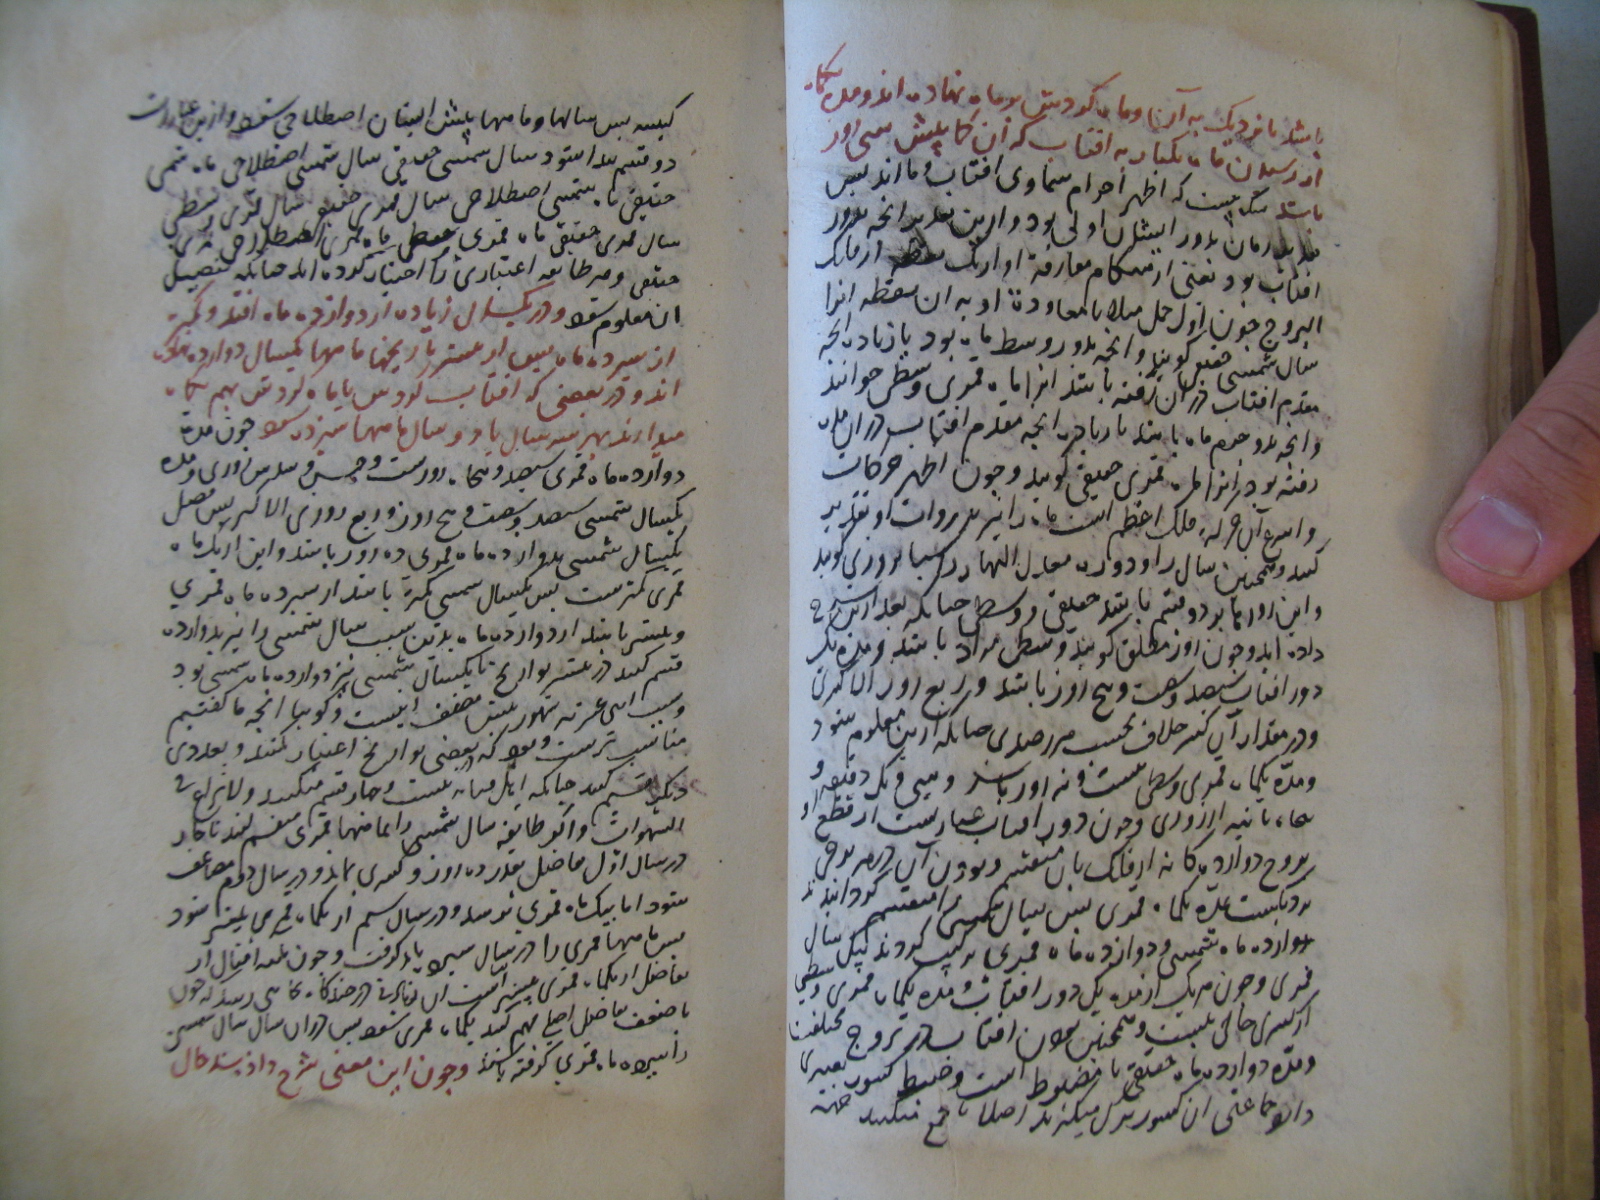 باشد یا نزدیک به آن و ماه گردش بر ماه نهاده اند و مدة یکماه
از رسیدن ماه یکبار به آفتاب که آن کما پیش سی روز
باشد شک نیست که اظهر اجرام سماوی آفتاب و ماه اند پس
تقدیر زمان بدور ایشان اولی بود و ازین تقدیر آنچه بدور
آفتاب بود یعنی از هنگام مفارقة او از یک نقطه از فلک
البروج چون اول حمل مثلا تا معاودة او به آن نقطه آنرا
سال شمسی حقیقی گویند و آنچه بدور وسط ماه بود با زیاده آنچه
مقدم آفتاب در آن رفته باشد آنرا ماه قمری وسطی خوانند
و آنچه بدور جرم ماه باشد با زیاده آنچه مقدم آفتاب در آن مدة
رفته بود آنرا ماه قمری حقیقی گویند و چون اظهر حرکات
و اسرع آن حرکة فلک اعظم است ماه را نیز بدورات او تقدیر
کنند و همچنین سال را و دوره معدل النهار را شبانروزی گویند
و این روز نیز بر دو قسم باشد حقیقی و وسطی چنانکه بعد ازین شرح
داده آید و چون روز مطلق گویند وسطی مراد باشد و مدة یک
دور آفتاب سیصد و شصت و پنج روز باشد و ربع روز الا کسری
و در مقدار آن کسر خلاف بحسب هر رصدی چنانکه ازین معلوم شود
و مدة یکماه قمری وسطی بیست و نه روز باشد و سی و یک دقیقه و
پنجاه ثانیه از روزی و چون دور آفتاب عبارت است از قطع او
بروج دوازده گانه از فلک بان منقسم و بودن آن در هر برجی
نزدیکست بمدة یکماه قمری پس سال شمسی را منقسم گردانیدند
بدوازده ماه شمسی و دوازده ماه قمری ترکیب کردند یکسال
قمری و چون هر یک از مدة یک دور آفتاب و مدة یکماه قمری وسطی
از کسری خالی نیست و همچنین بودن آفتاب در بروج مختلفست
و مدة دوازده ماه حقیقی نا مضبوط است و ضبط کسور تعسری
دارد جماعتی آن کسور ترک میکنند اصلا یا جمع میکنند جهة
کبیسه پس سالها و ماهها پیش ایشان اصطلاحی شود و ازین عبارت
دو قسم پیدا شود سال شمسی حقیقی سال شمسی اصطلاحی ماه شمسی
حقیقی ماه شمسی اصطلاحی سال قمری حقیقی سال قمری وسطی
سال قمری حقیقی ماه قمری وسطی ماه قمری اصطلاحی قمری
حقیقی و هر طایفه اعتباری را اختیار کرده اند چنانکه تفصیل
آن معلوم شود و در یکسال زیاده از دوازده ماه افتد و کمتر
از سیزده ماه پس از بیشتر تاریخها ماهها یکسال دوازده
اند و در بعضی که آفتاب گردش با ماه گردش بهم نگاه
میدارند بهر سه سال یا دو سال ماهها سیزده شود چون مدة
دوازده ماه قمری سیصد و پنجاه روزست و خمس و سدس روزی و مدة
یکسال شمسی سیصد و شصت و پنج روز و ربع روزی الا کسر پس فضل
یکسال شمسی بدوازده ماه قمری ده روز باشد و این از یک ماه
قمری کمترست پس یکسال شمسی کمتر باشد از سیزده ماه قمری
و بیشتر باشد از دوازده ماه بدین سبب سال شمسی را نیز بدوازده
قسم کنند در بیشتر تواریخ تا یکسال شمسی نیز دوازده ماه شمسی بود
مناسب ترست و بود که بعضی تواریخ اعتبار نکنند و بعددی
دیگر قسم کنند چنانکه
و اگر طایفه سال شمسی را بماهها قمری قسم کنند ناچار
در سال اول فاضل بقدر ده روز و کسری بماند و در سال دوم مضاعف
شود اما بیک ماه قمری نرسد و در سال سیم از یکماه قمری بیشتر شود
پس ماهها قمری را در سال سیم سیزده باید گرفت و چون
فاضل از یکماه قمری بیشتر است آن
با ضعف فاضل اصلی بهم کنند یکماه قمری شود پس در آن سال سال شمسی
را سیزده ماه قمری گرفته باشند و چون این معنی شرح داده شد حال